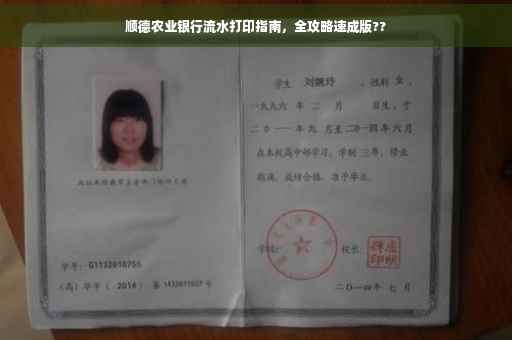 顺德农业银行流水打印指南，全攻略速成版??
学生 刘婉玲 ，性别 女 ，
一九九六 年 二 月 日生，于
二〇一一 年九 月至二〇一四年 六月
在本校高中部学习，学制 三年，修业
期满，成绩合格，准予毕业。
学校： 校长：
学号： G1132010755
（高）毕字（ 2014 ）第 1432011607 号
二〇一四年 七 月